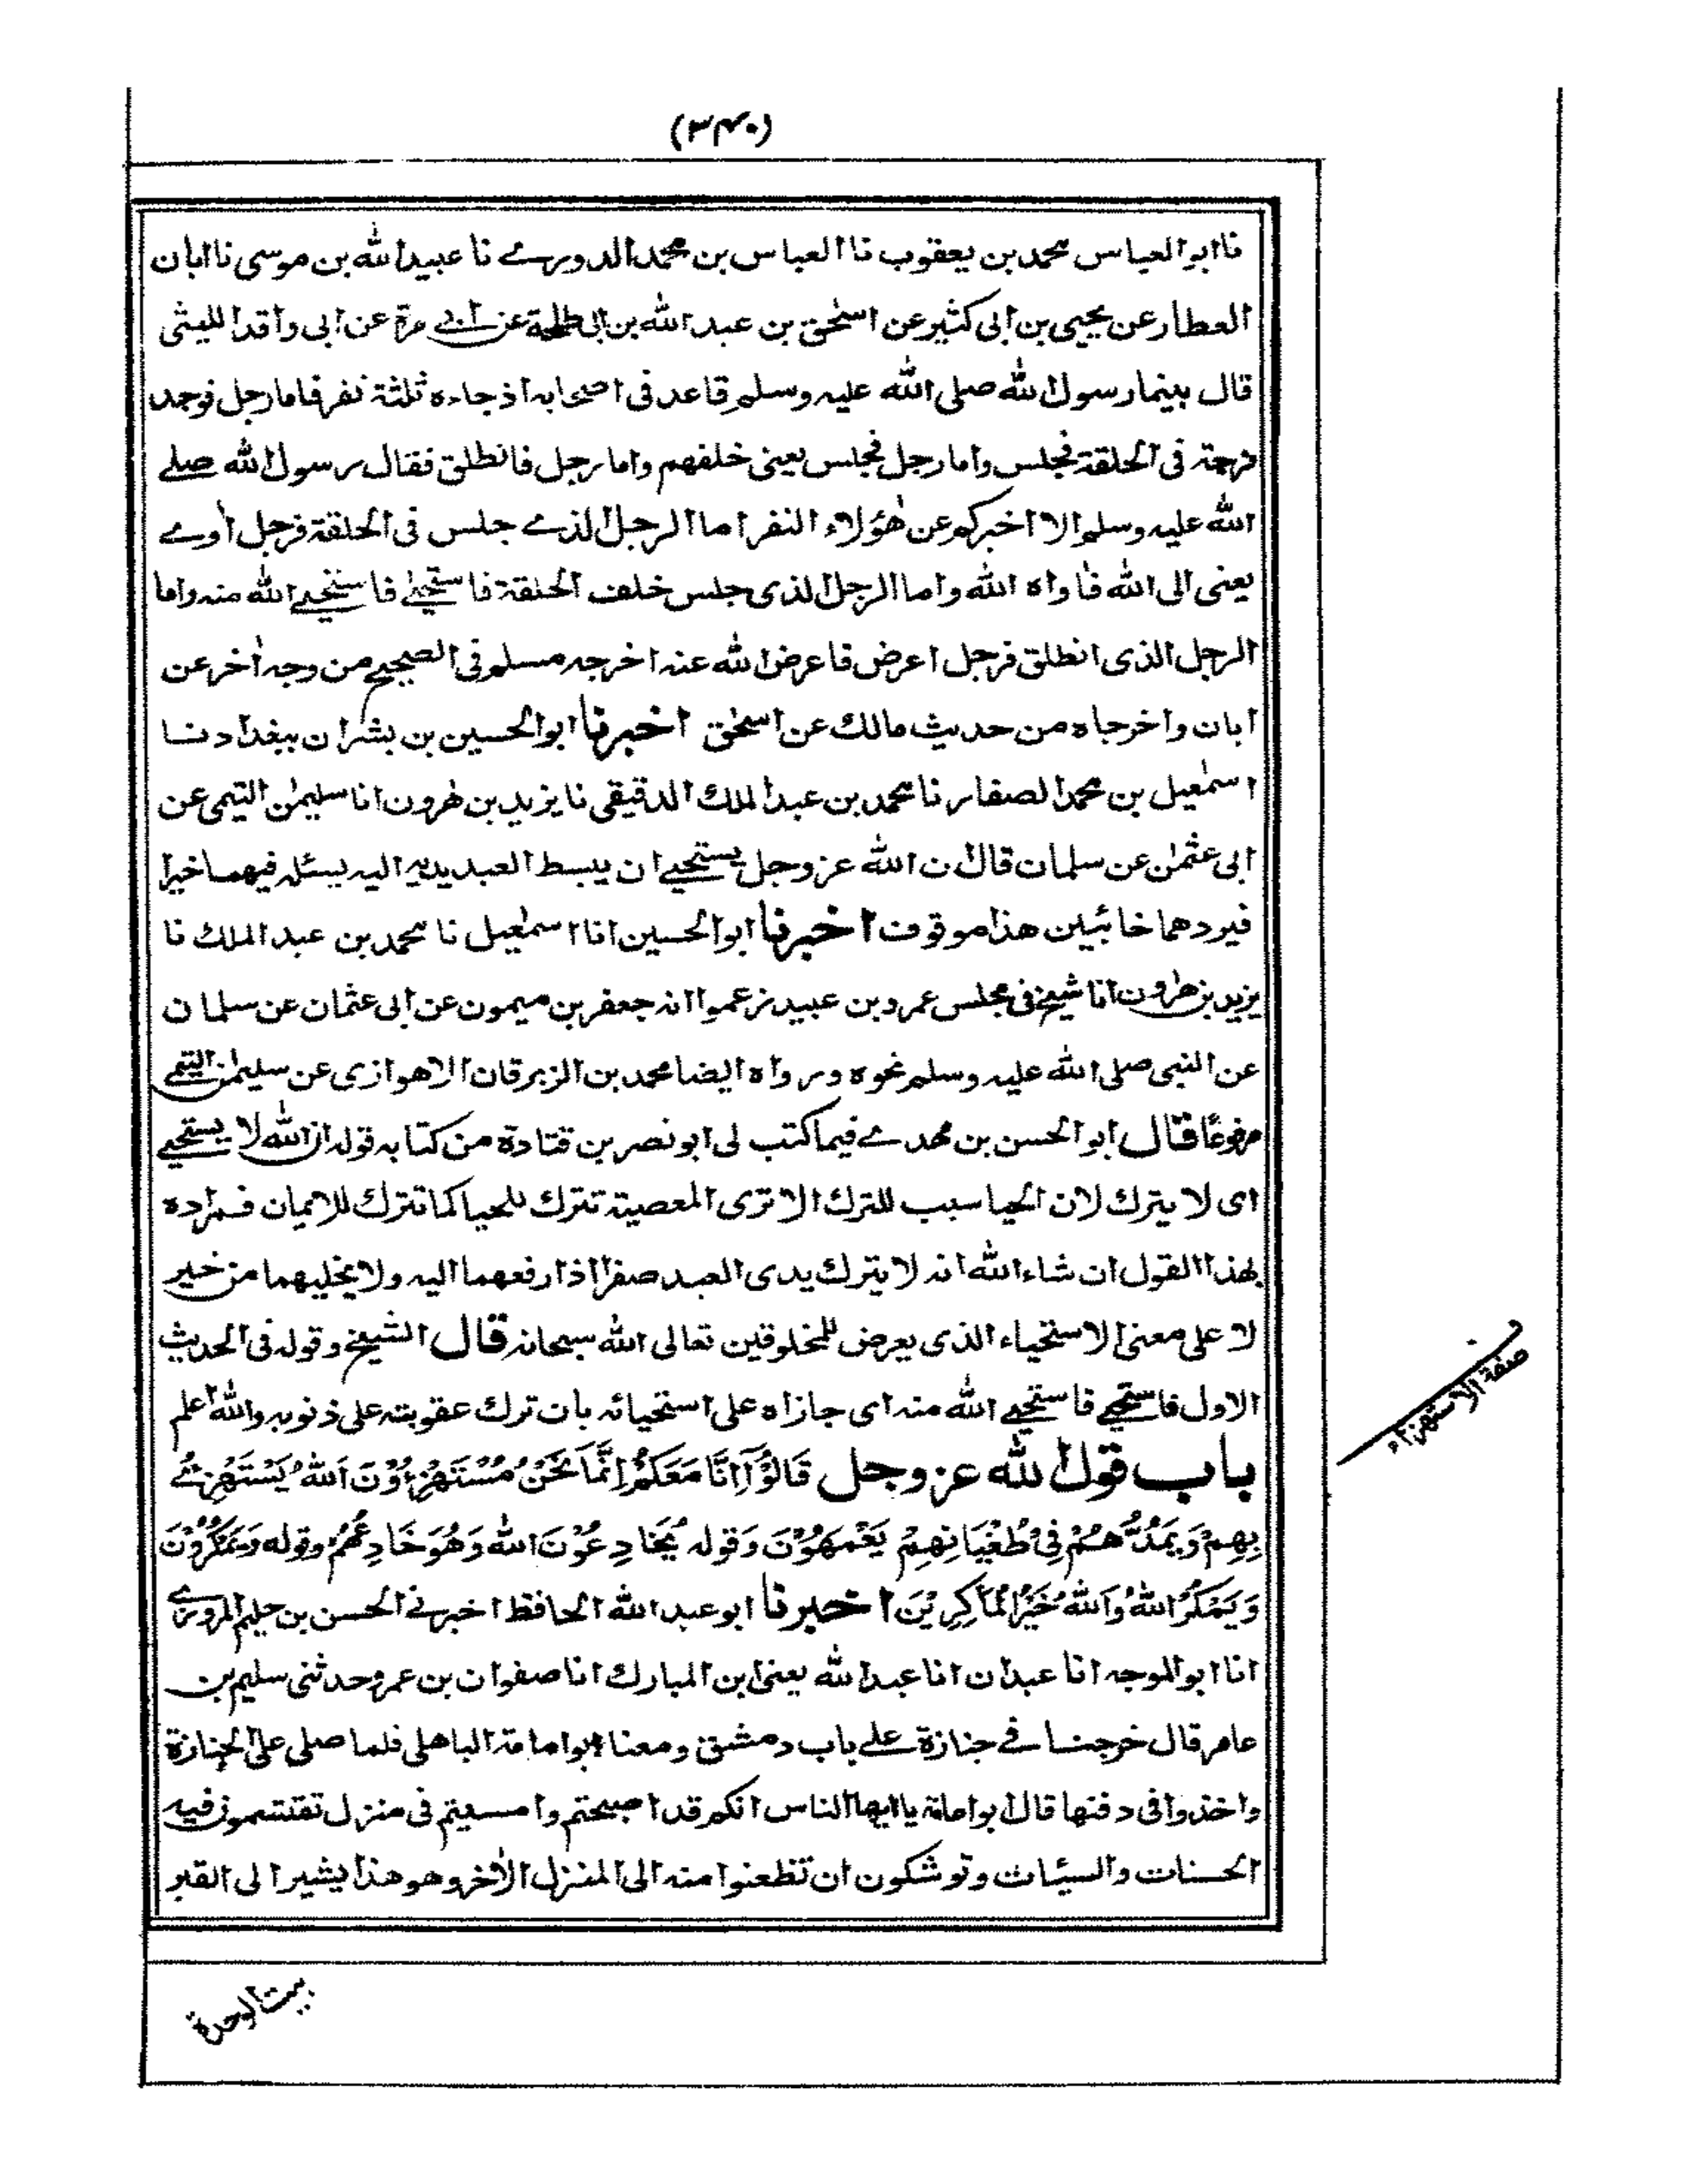 (٣٤٠)
نا ابو العباس محمد بن يعقوب نا العباس بن محمد الدوري نا عبيد الله بن موسى نا ابان
العطار عن يحيى بن ابى كثير عن اسحٰق بن عبد الله بن ابى طلحة عن ابى مرة عن ابى واقد الليثى
قال بينما رسول الله صلى الله عليه وسلم قاعد فى اصحابه اذ جاءه ثلثة نفر فاما رجل فوجد
فرجة فى الحلقة فجلس واما رجل فجلس يعنى خلفهم واما رجل فانطلق فقال رسول الله صلے
الله عليه وسلم الا اخبركم عن هٰؤلاء النفر اما الرجل الذے جلس فى الحلقة فرجل اوے
يعنى الى الله فاٰواه الله واما الرجل الذى جلس خلف الحلقة فاستحيے فاستحيے الله منه واما
الرجل الذى انطلق فرجل اعرض فاعرض الله عنه اخرجه مسلم فى الصحيح من وجه اٰخر عن
ابان واخرجاه من حديث مالك عن اسحٰق اخبرنا ابو الحسين بن بشران ببغداد نا
اسمٰعيل بن محمد الصفار نا محمد بن عبد الملك الدقيقى نا يزيد بن هٰرون انا سليمٰن التيمى عن
ابى عثمٰن عن سلمان قال ان الله عز وجل يستحيے ان يبسط العبد يديه اليه يسئله فيهما خيرا
فيردهما خائبين هذا موقوف اخبرنا ابو الحسين انا اسمٰعيل نا محمد بن عبد الملك نا
يزيد بن هٰرون انا شيخ فى مجلس عمرو بن عبيد زعموا انه جعفر بن ميمون عن ابى عثمان عن سلمان
عن النبى صلى الله عليه وسلم نحوه ورواه ايضا محمد بن الزبرقان الاهوازى عن سليمٰن التيمے
مرفوعًا قال ابو الحسن بن مهدے فيما كتب لى ابو نصر بن قتادة من كتابه قوله ان الله لا يستحيے
اى لا يترك لان الحيا سبب للترك الا ترى المعصية تترك للحيا كما تترك للايمان فمراده
بهذا القول ان شاء الله انه لا يترك يدى العبد صفرا اذا رفعهما اليه ولا يخليهما من خير
لا على معنى الاستحياء الذى يعرض للمخلوقين تعالى الله سبحانه قال الشيخ وقوله فى الحديث
الاول فاستحيے فاستحيے الله منه اى جازاه على استحيائه بان ترك عقوبته على ذنوبه والله اعلم
باب قول الله عز وجل قَالُوْآ اِنَّا مَعَكُمْ اِنَّمَا نَحْنُ مُسْتَهْزِءُوْنَ اَللهُ يَسْتَهْزِئُ
بِهِمْ وَيَمُدُّهُمْ فِىْ طُغْيَانِهِمْ يَعْمَهُوْنَ وَقوله يُخَادِعُوْنَ اللهَ وَهُوَ خَادِعُهُمْ وقوله وَيَمْكُرُوْنَ
وَيَمْكُرُ اللهُ وَاللهُ خَيْرُ الْمَاكِرِيْنَ اخبرنا ابو عبد الله الحافظ اخبرنے الحسن بن حليم المروزے
انا ابو الموجه انا عبدان انا عبد الله يعنى ابن المبارك انا صفوان بن عمرو حدثنى سليم بن
عامر قال خرجنا فے جنازة علے باب دمشق ومعنا ابو امامة الباهلى فلما صلى على الجنازة
واخذوا فى دفنها قال ابو امامة يا ايها الناس انكم قد اصبحتم وامسيتم فى منزل تقتسمون فيه
الحسنات والسيئات وتوشكون ان تظعنوا منه الى المنزل الاٰخر وهو هذا يشير الى القبر
صفة الاستهزاء
بيت الوحدة